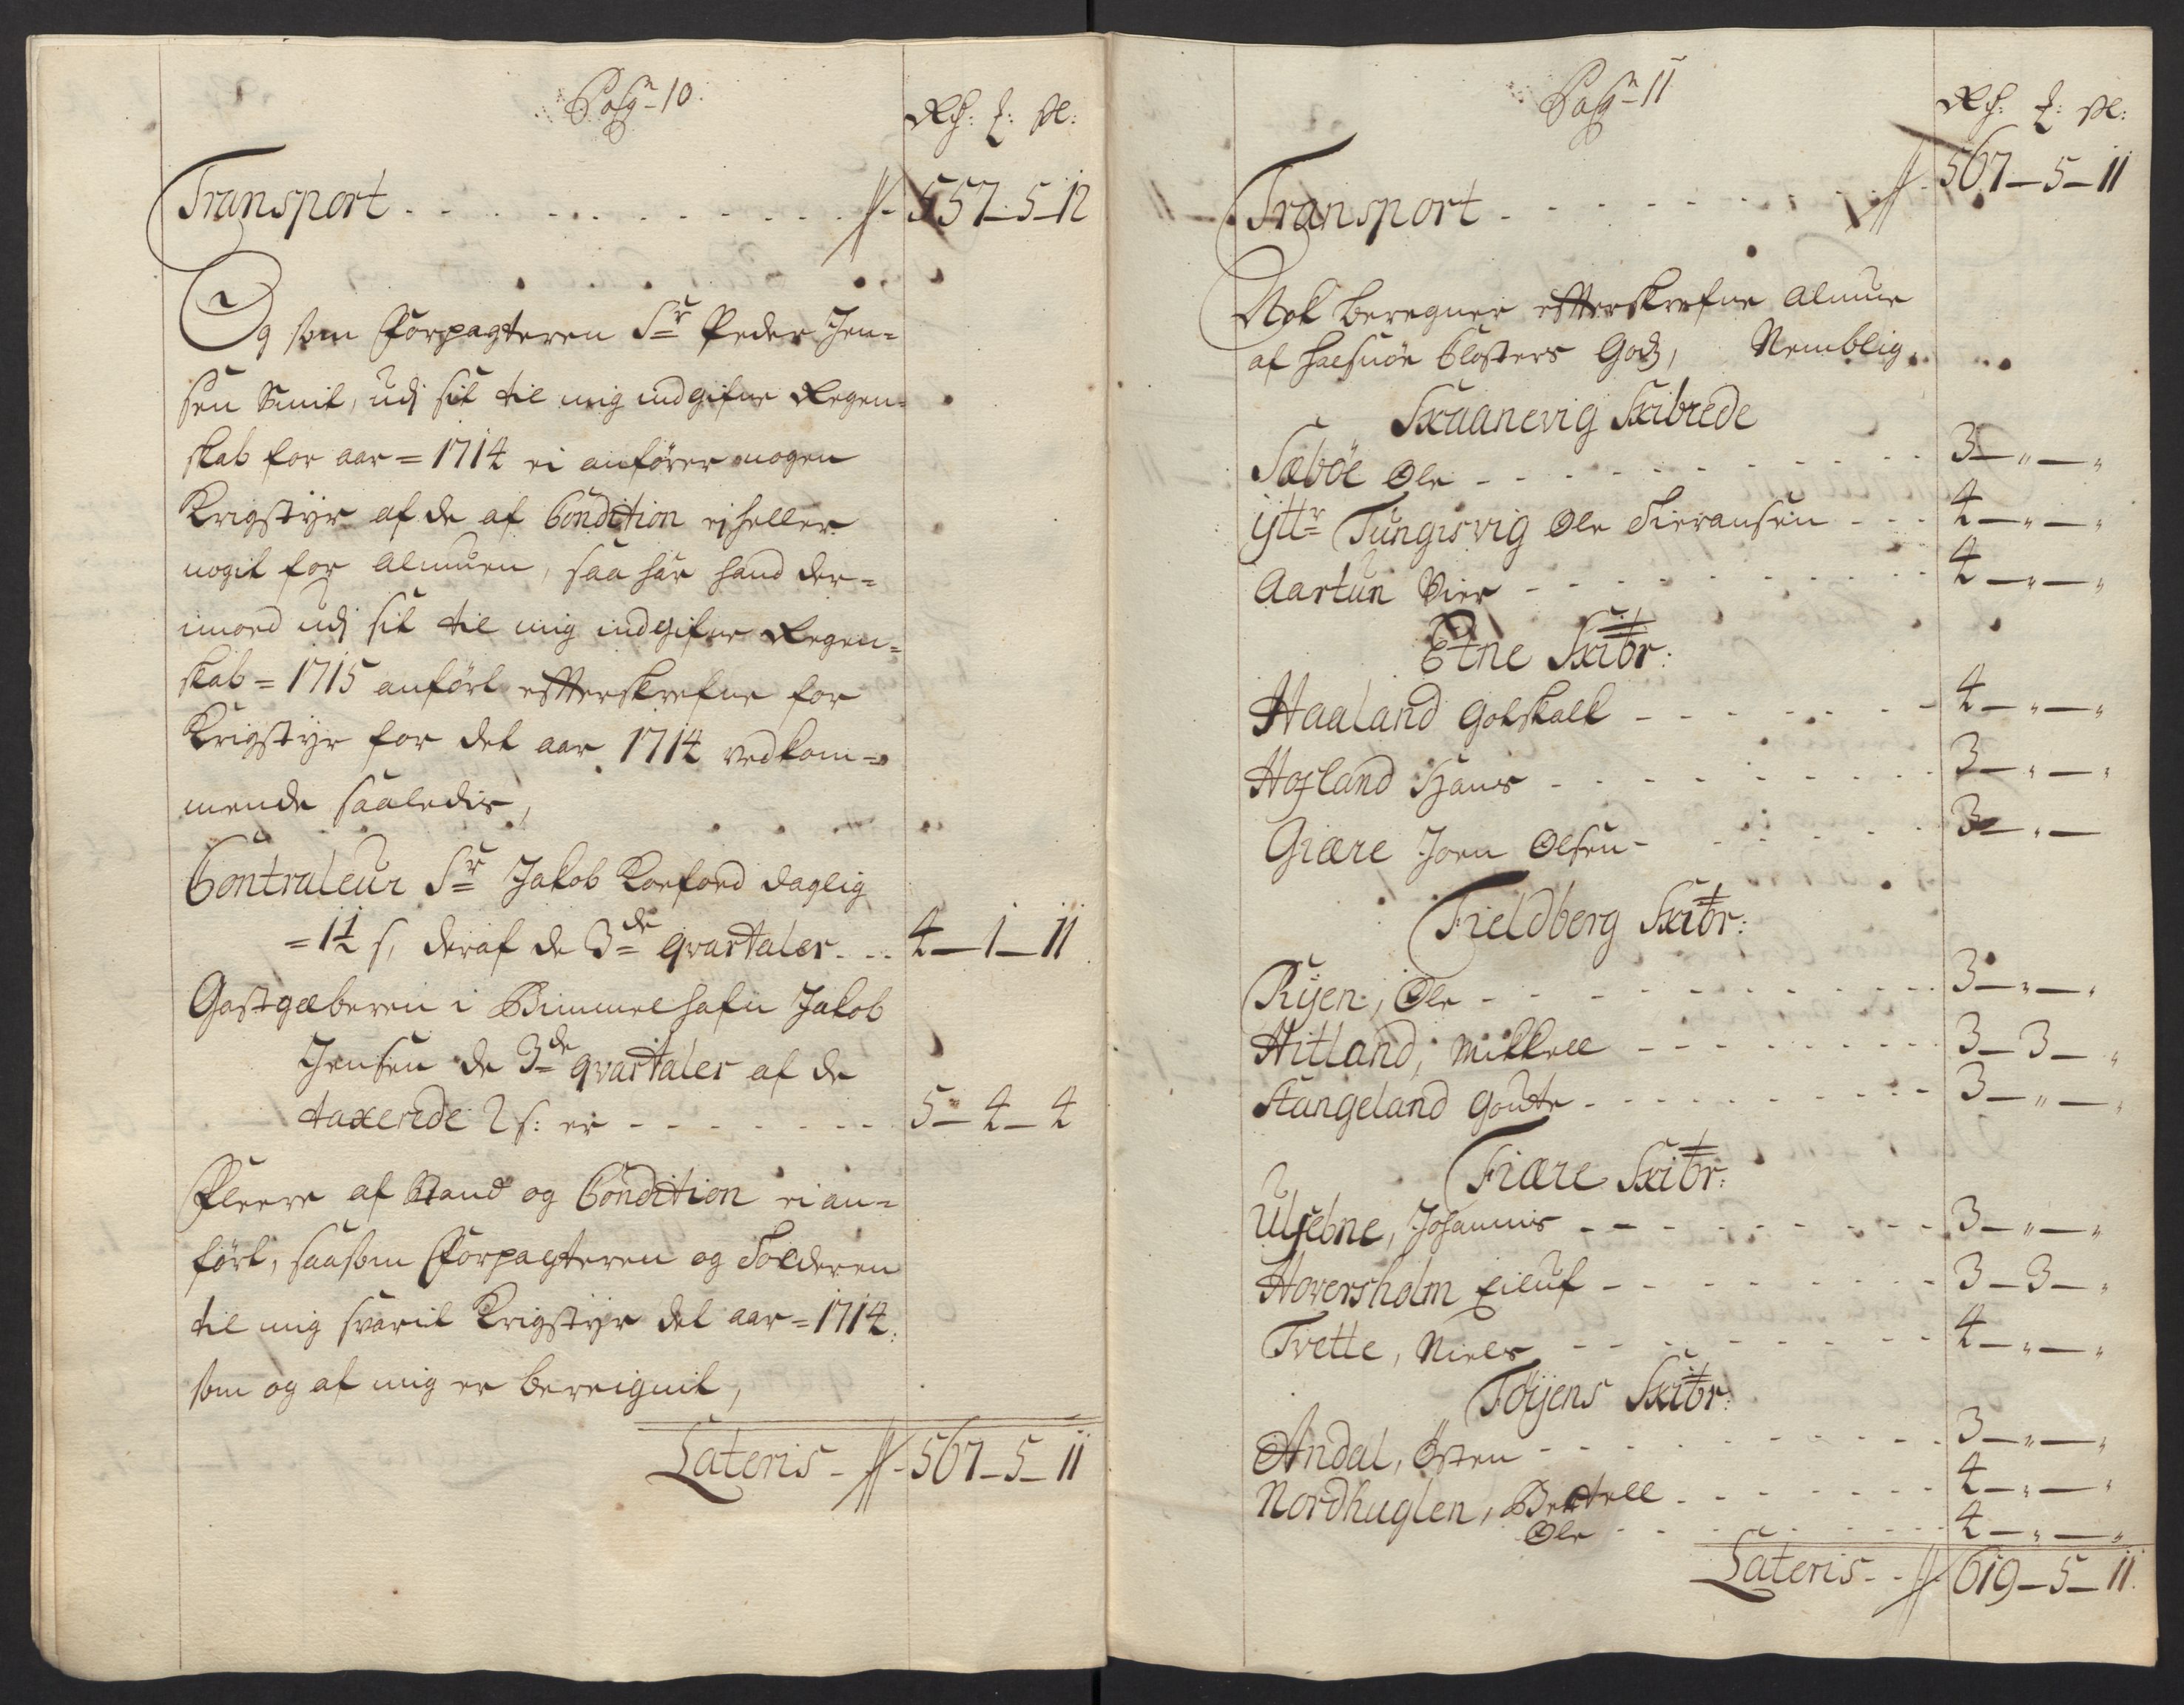 Pagn 10.
Rd: ƺ: sl:
Transport . . . . . . . . . . . 557 — 5 — 12
Og som Forpagteren Sr Peder Jen=
sen Smit, udj sit til mig indgifne Regen=
skab for aar = 1714 ei anfører nogen
Krigstyr af de af Condition ej heller
nogit for Almuen, saa har hand der=
imod udj sit til mig indgifne Regen=
skab = 1715 anført effterskrefne for
Krigstyr for det aar 1714 vedkom=
mende saaledis,
Contraleur Sr Jakob Koefoed daglig
= 1½ s, deraf de 3de qvartaler . . . 4 — 1 — 11
Gastgæberen i Bimmelhafn Jakob
Jensen de 3de qvartaler af de
taxerede 2 s: er - - - - - - - 5 — 4 — 4
Fleere af Stand og Condition ei an=
ført, saasom Forpagteren og Tolderen
til mig svarit Krigstyr det aar = 1714.
som og af mig er bereignit,
Lateris - 567 — 5 — 11
Pagn 11
Rd: ƺ: sl:
Transport - - - - - - - - 567 — 5 — 11
Nok beregner effterskrefne Almue
af Halsnøe Closters Godz, Nemblig.
Skaanevig Skibrede
Sæbøe Ole - - - - - - - - - 3 — " — "
Yttr Tungisvig Ole Siversen - - - 4 — " — "
Aartun Vier - - - - - - - - - 4 — " — "
Etne Skibr:
Haaland Gotskalk - - - - - - - 4 — " — "
Hofland Hans - - - - - - - - - 3 — " — "
Giære Joen Olsen - - - - - - 3 — " —
Fieldberg Skibr:
Ryen, Ole - - - - - - - - - - 3 — " — "
Hitland, Mikkell - - - - - - - - 3 — 3 — "
Stangeland Goute - - - - - - - - - 3 — " — "
Fiære Skibr:
Ulfebne, Johannis - - - - - - - - 3 — " — "
Hoversholm Eiluf - - - - - - - - 3 — 3 — "
Tvette, Niels - - - - - - - - - 4 — " — "
Føyens Skibr:
Andal, Østen - - - - - - - - - - 3 — " — "
Nordhuglen, Bertell - - - - - - - 4 — " — "
Ole - - - - - - - - - 4 — " — "
Lateris - - 619 — 5 — 11.